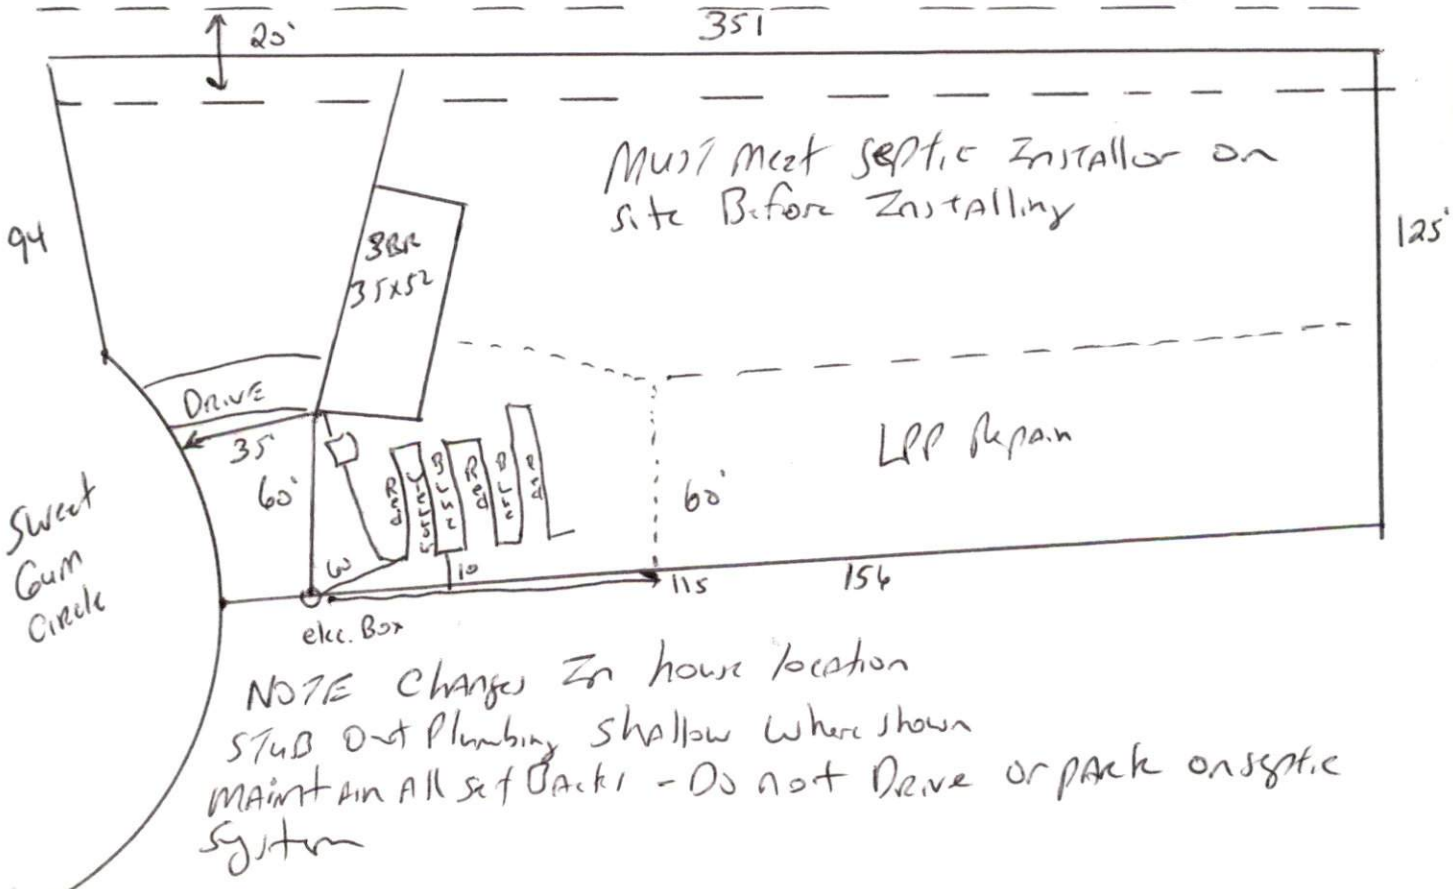 20'
351
Must meet septic Installer on
site Before Installing
94
125'
3BR
35x52
DRIVE
35
60'
Red
Blue
Red
Blue
Red
LPP Repair
60'
Sweet
Gum
Circle
60
10
115
156
elec. Box
NOTE Changes In house location
STUB Out Plumbing Shallow Where shown
MAINTAIN All SetBacks - Do not Drive or park on septic
System